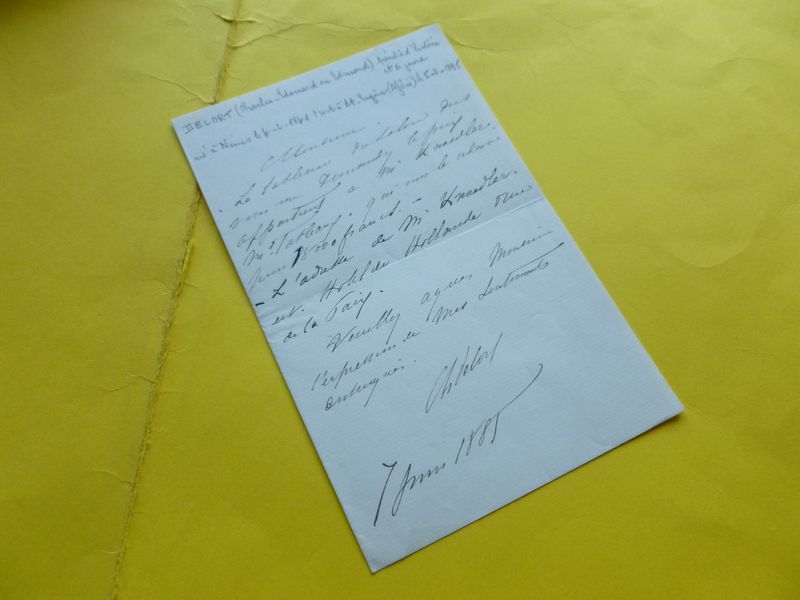 DELORT (Charles-Edouard ou Edmond) peintre d'histoire
et de genre
né à Nîmes le 4-2-1841 Mort à St-Eugène (Algérie) le 5-3-1895
Monsieur
Le tableau du Salon dont
vous me demandez le prix
appartient à Mr Knoedler.
Md de Tableaux. Qui me le
pour 18000 francs. -
- L'adresse de M. Knoedler.
est. Hôtel de Hollande rue
de la Paix.
Veuillez agréer Monsieur
l'expression de mes Sentiments
distingués.
Ch Delort
7 Juin 1885